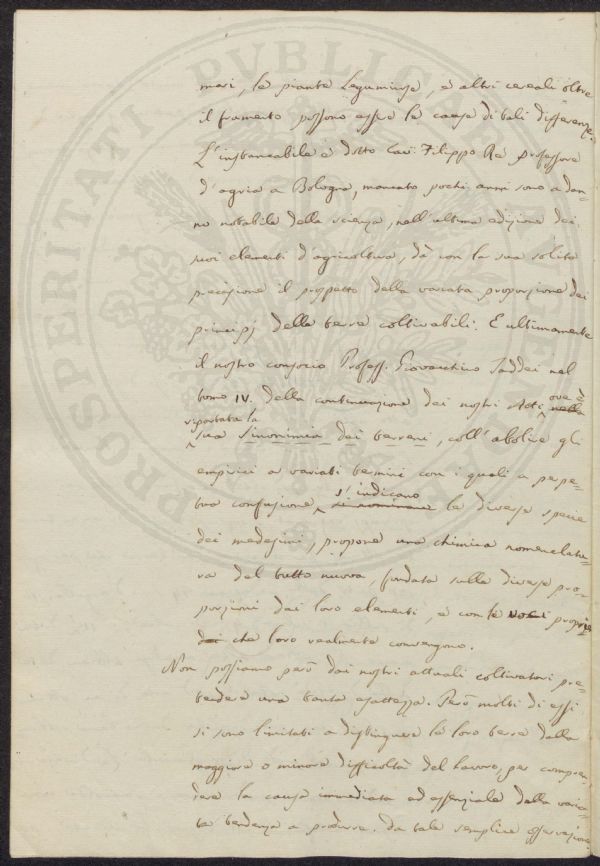 mari, le piante leguminose, e altri cereali oltre
il frumento possono essere la causa di tali differenze.
L'instancabile e dotto Cav. Filippo Re Professore
d'agria a Bologna, mancato pochi anni sono a dan-
no notabile della scienza, nell'ultima edizione dei
suoi elementi d'agricoltura, dà con la sua solita
precisione il prospetto della variata proporzione dei
principj delle terre coltivabili. E ultimamente
il nostro consocio Profess. Giovacchino Taddei nel
tomo IV. della continuazione dei nostri Atti ove è nella
riportata la
sua sinonimia dei terreni, coll'abolire gli
empirici e variati termini con i quali a perpe-
tua confusione s'indicano si nominano le diverse specie
dei medesimi, propone una chimica nomenclatu-
ra del tutto nuova, fondata sulle diverse pro-
porzioni dei loro elementi, e con le voci proprie
che loro realmente convengono.
Non possiamo però dai nostri attuali coltivatori pre-
tendere una tanta esattezza. Però molti di essi
si sono limitati a distinguere le loro terre dalla
maggiore o minore difficoltà del lavoro, per compren-
dere la causa immediata ed essenziale della varia-
ta tendenza a produrre. Da tale semplice osservazione
PROSPERITATI PVBLICAE AVGENDAE